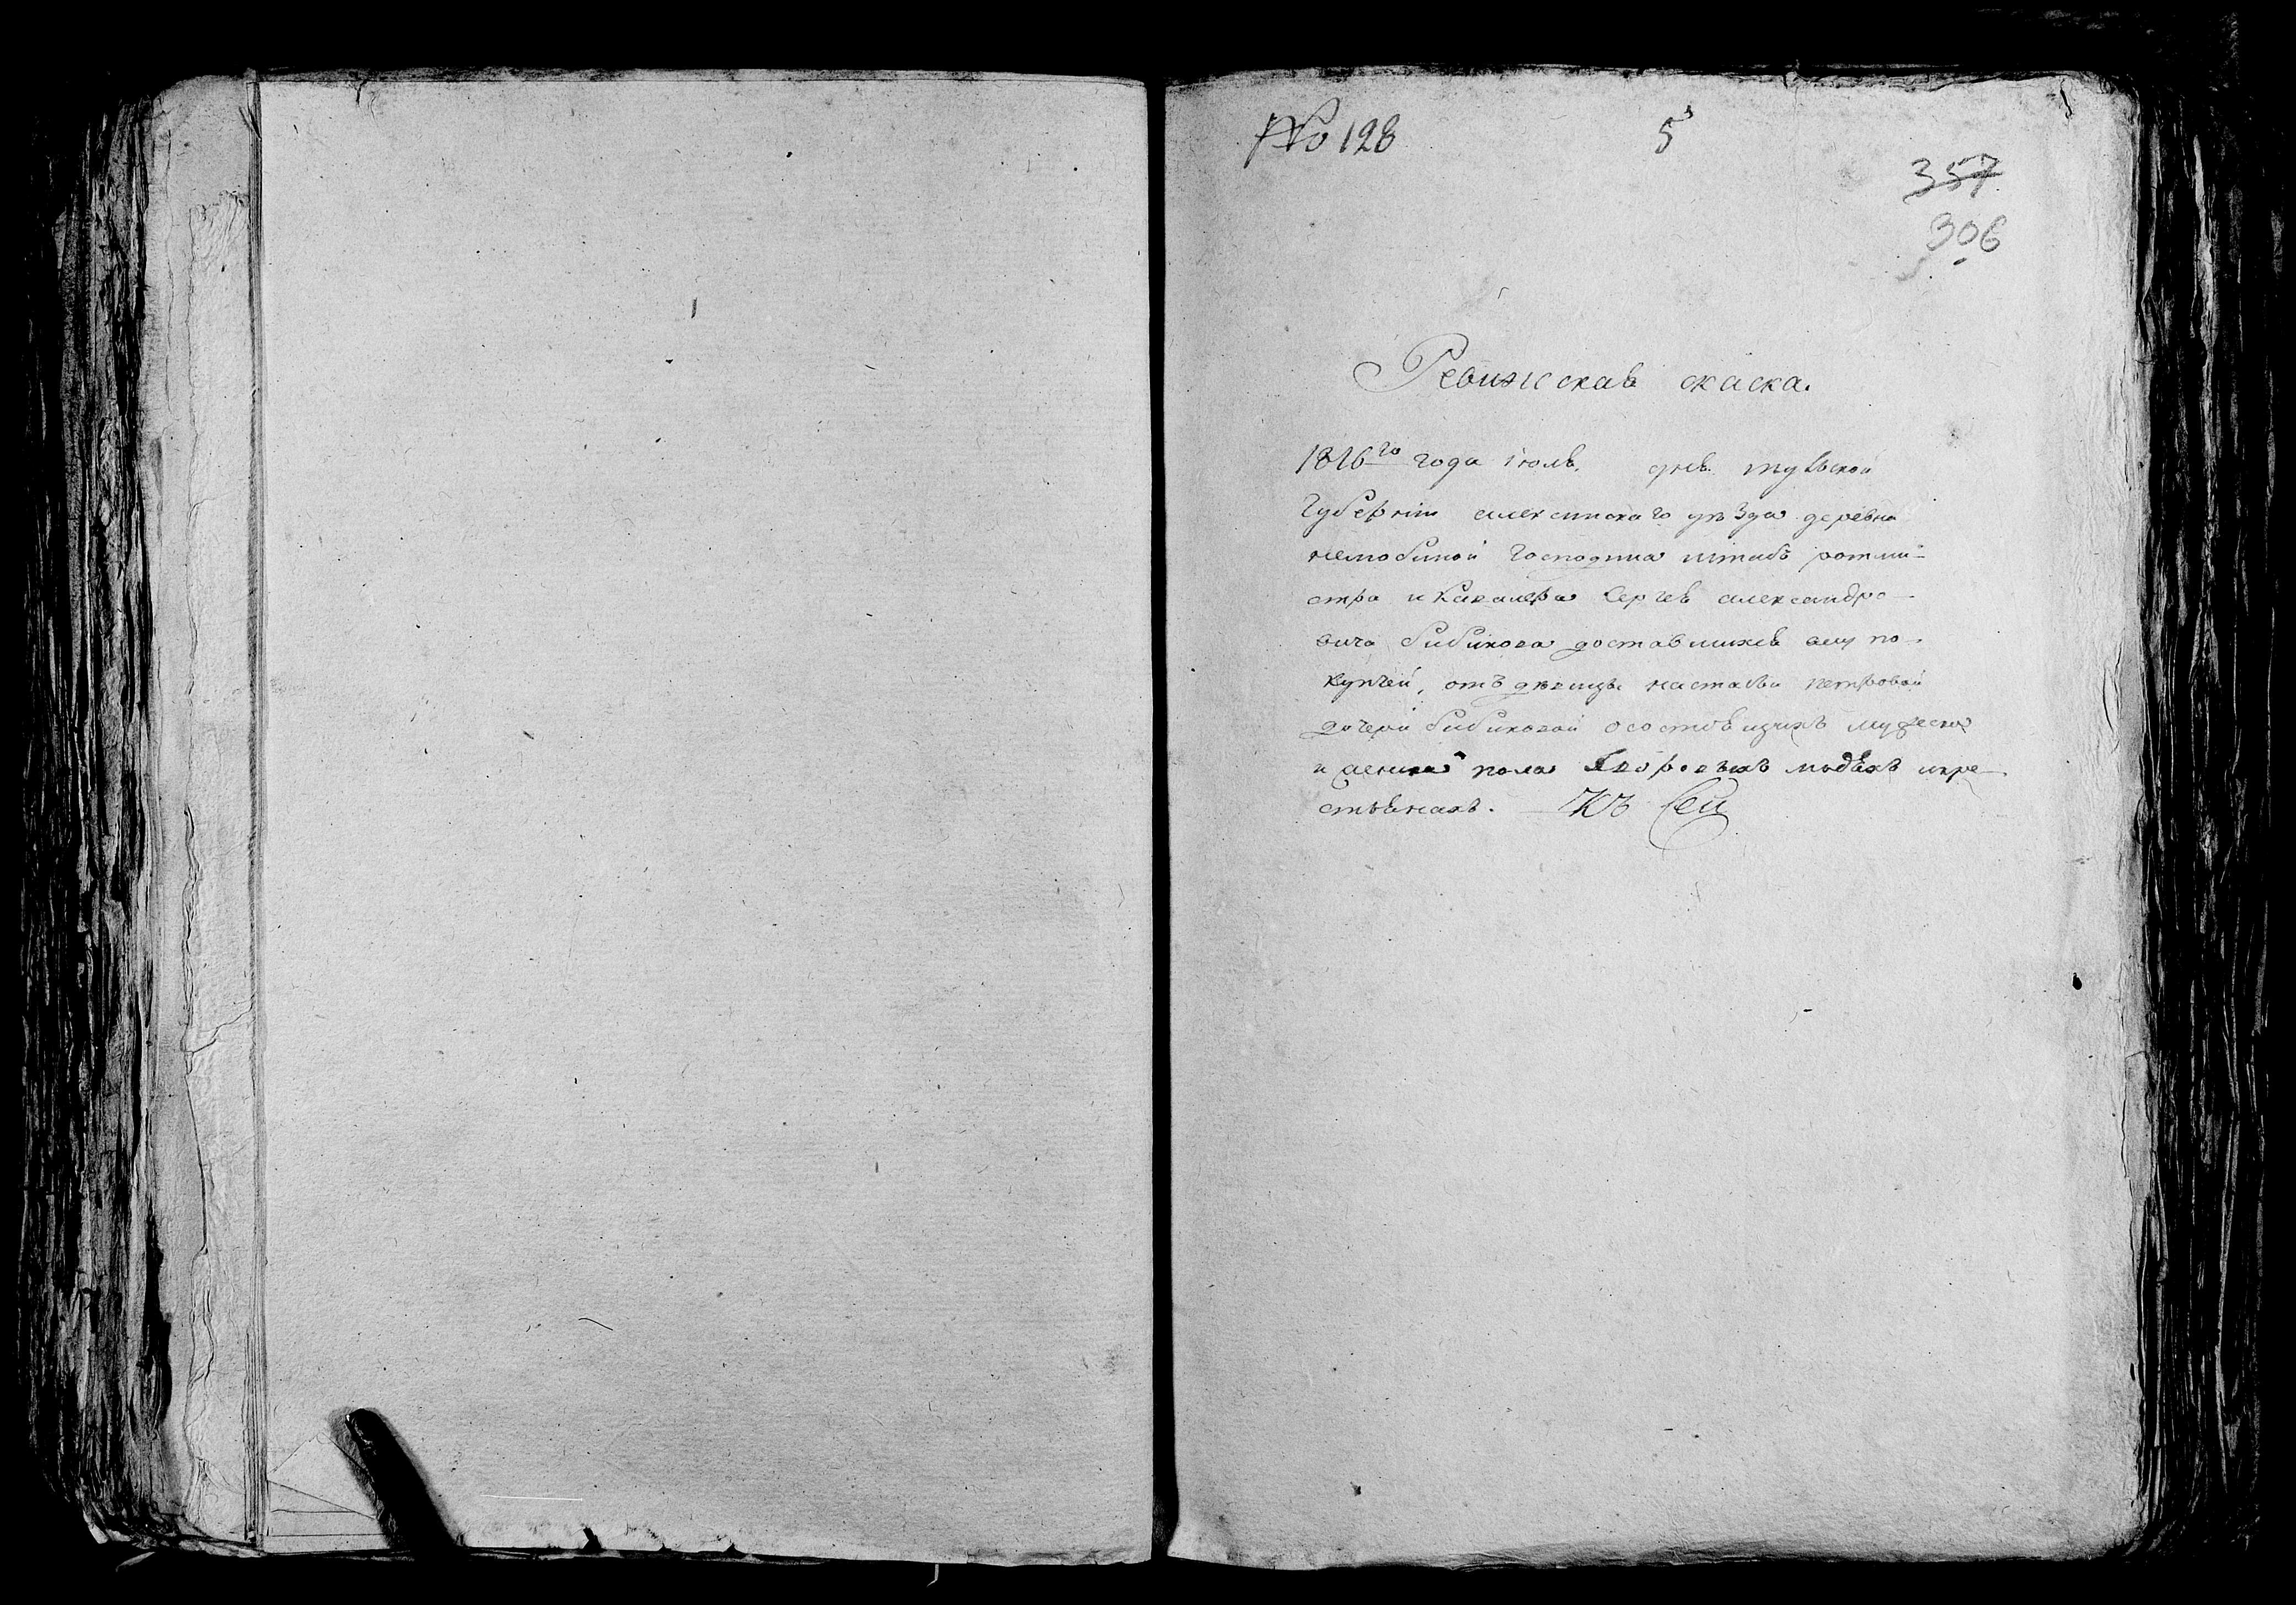 № 128 5
357
306
Ревижская скаска.
1816го года июля. дня. тульской
губернiи алексинскаго уѣзда деревна
господина штабъ ротми-
стра и кавалера Сергея александро-
вича бибикова доставшихся ему по-
купчей, отъ девицы настасьи петровой
дочери бибиковой о состоящихъ мужеска
и женска пола дворовыхъ людяхъ икре-
стьянахъ. Къ Сей